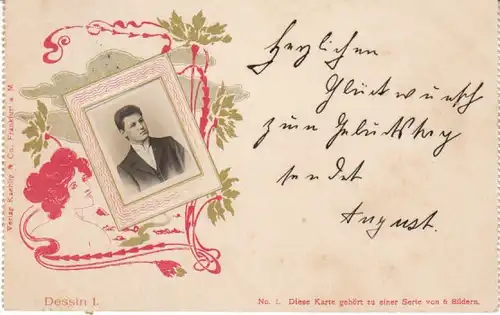 Herzlichen
Glückwunsch
zum Geburtstag
sendet
August.
Verlag Knehlig & Co. Frankfurt a. M
Dessin 1.
No. 1. Diese Karte gehört zu einer Serie von 6 Bildern.